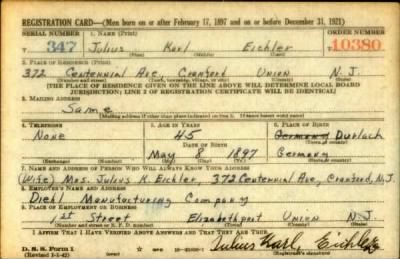 REGISTRATION CARD—(Men born on or after February 17, 1897 and on or before December 31, 1921)
SERIAL NUMBER 1. NAME (Print) ORDER NUMBER
T 347 Julius Karl Eichler T 10380
(First) (Middle) (Last)
2. PLACE OF RESIDENCE (Print)
372 Centennial Ave, Cranford Union N.J.
(Number and street) (Town, township, village, or city) (County) (State)
[THE PLACE OF RESIDENCE GIVEN ON THE LINE ABOVE WILL DETERMINE LOCAL BOARD
JURISDICTION; LINE 2 OF REGISTRATION CERTIFICATE WILL BE IDENTICAL]
3. MAILING ADDRESS
Same
[Mailing address if other than place indicated on line 2. If same insert word same]
4. TELEPHONE 5. AGE IN YEARS 6. PLACE OF BIRTH
None 45 Germany Durlach
DATE OF BIRTH (Town or county)
May 8 1897 Germany
(Exchange) (Number) (Mo.) (Day) (Yr.) (State or country)
7. NAME AND ADDRESS OF PERSON WHO WILL ALWAYS KNOW YOUR ADDRESS
(Wife) Mrs. Julius K. Eichler, 372 Centennial Ave, Cranford, N.J.
8. EMPLOYER'S NAME AND ADDRESS
Diehl Manufacturing Company
9. PLACE OF EMPLOYMENT OR BUSINESS
1st Street Elizabethport Union N.J.
(Number and street or R. F. D. number) (Town) (County) (State)
I AFFIRM THAT I HAVE VERIFIED ABOVE ANSWERS AND THAT THEY ARE TRUE.
D. S. S. Form 1
(Revised 1-1-42) Julius Karl Eichler